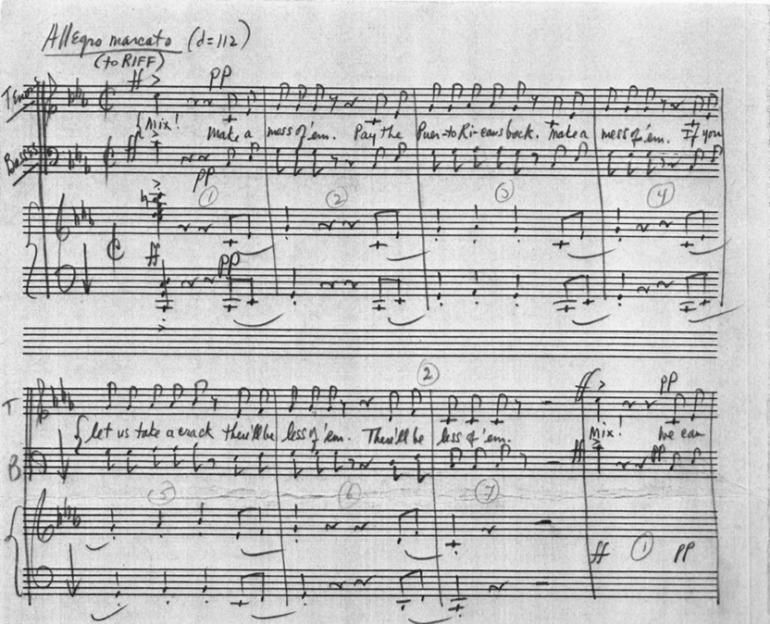 Allegro marcato (d=112)
(to RIFF)
ff pp
Tenors
Mix! Make a mess of 'em. Pay the Puer-to Ri-cans back. Make a mess of 'em. If you
Basses ff
pp
1 2 3 4
ff pp
2
ff pp
T
let us take a crack there'll be less of 'em. There'll be less of 'em. Mix! We can
B ff pp
5 6 7
ff 1 pp